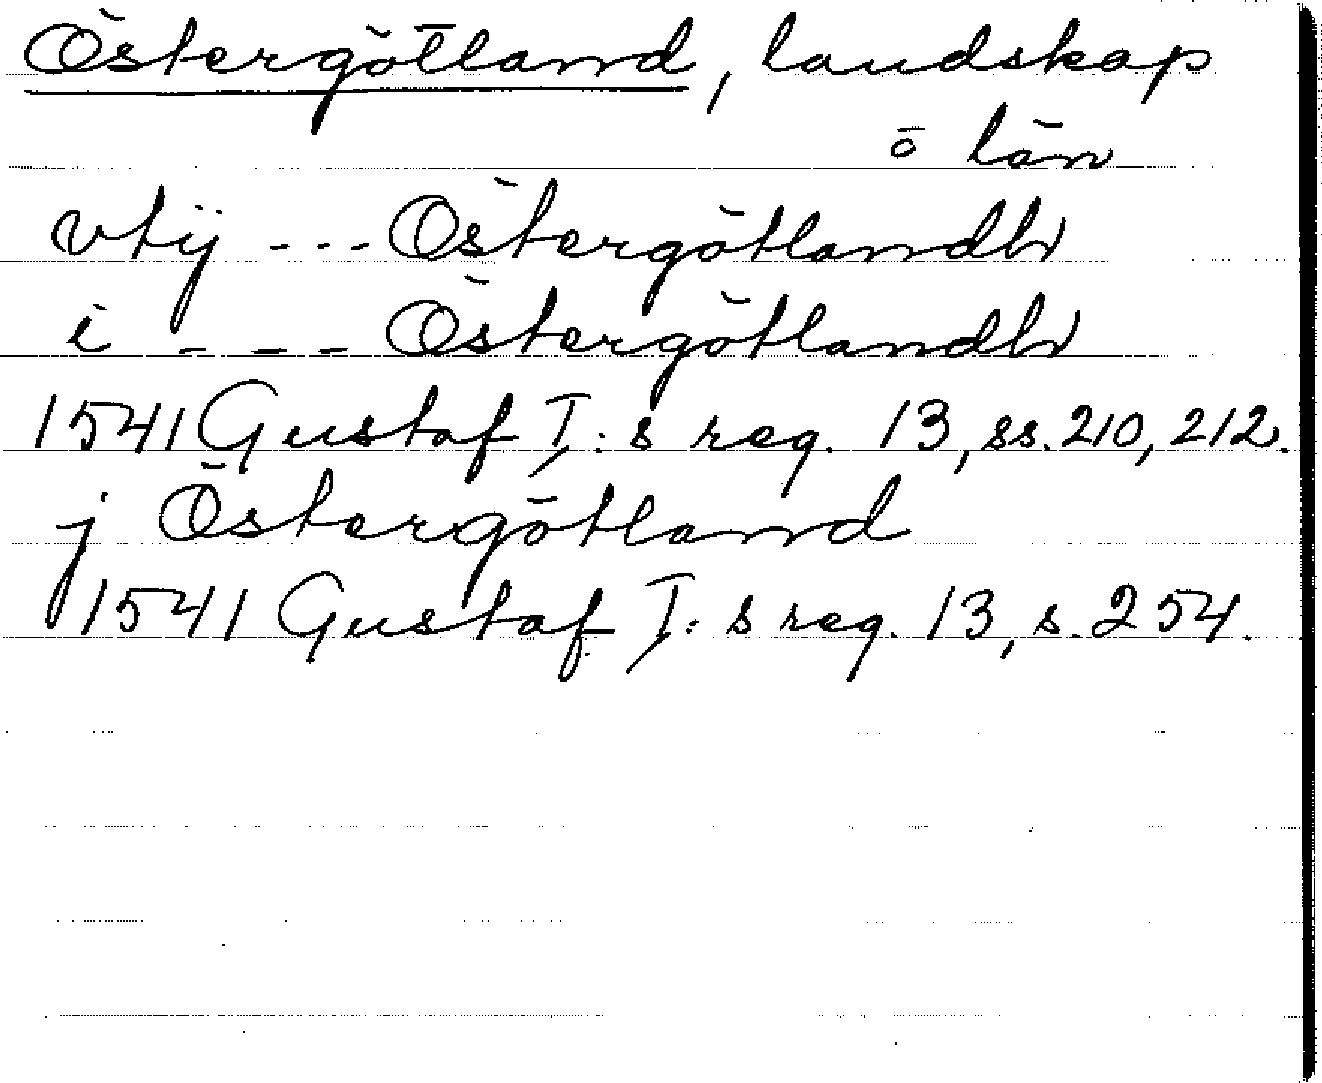 Östergötland, landskap
o län
vtij --- Östergötlandh
i --- Östergötlandh
1541 Gustaf I:s reg. 13, ss. 210, 212.
j Östergötland
1541 Gustaf I:s reg. 13, s. 254.